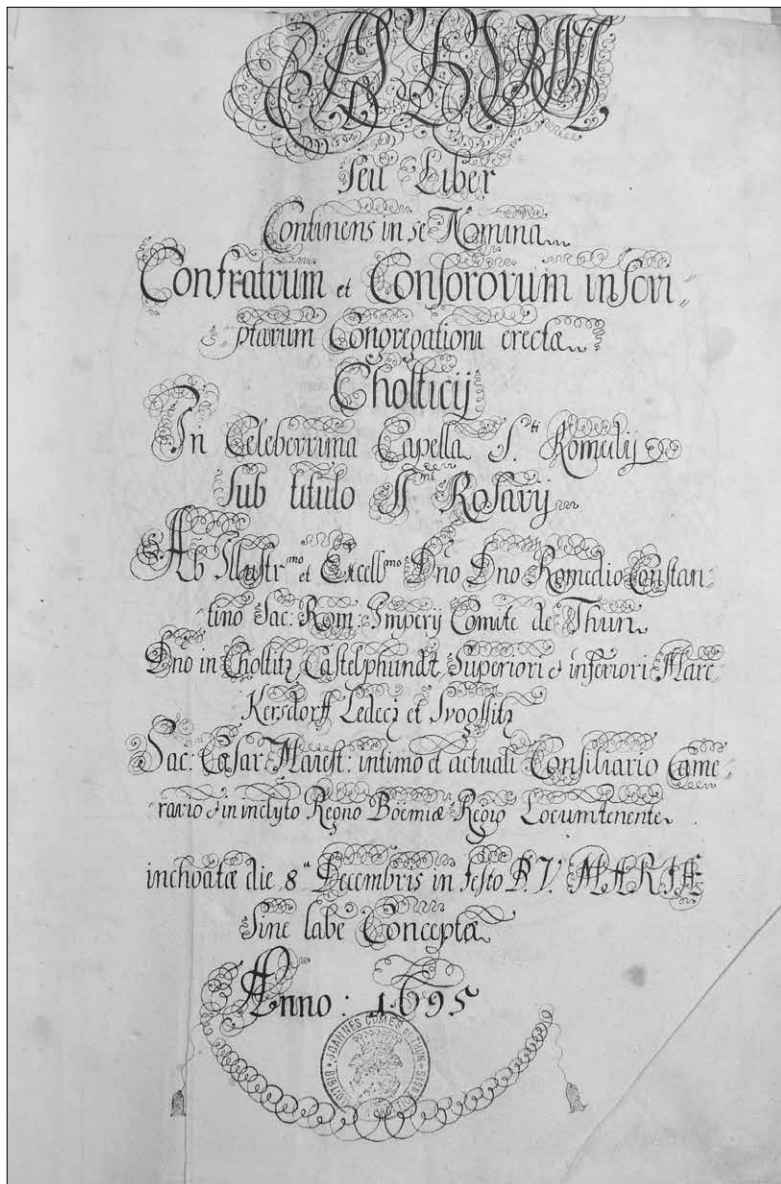 ALBUM
seu Liber
Continens in se Nomina
Confratrum et Consororum inscri-
ptarum Congregationi erectæ
Cholticij
In Celeberrima Capella S.ti Romedij
sub titulo SS.mi Rosarij
Ab Illustr.mo et Excell.mo Dño Dño Romedio Constan:
tino Sac: Rom: Imperij Comite de Thun
Dño in Choltitz, Castelphundt, Superiori et inferiori Marc-
Kersdorff Ledecz et
Sac: Cæsar: Maiest: intimo et actuali Consiliario Came-
rario et in inclyto Regno Boëmiæ Regio Locumtenente
inchoatæ die 8a Decembris in festo B. V. MARIÆ
Sine labe Conceptæ
Anno: 1695
JOANNES COMES A THUN